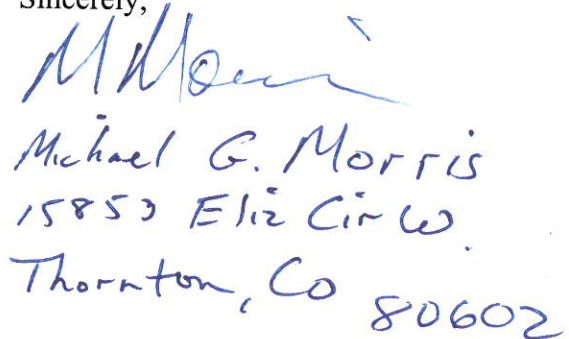 Sincerely,
M Morris
Michael G. Morris
15853 Eliz Cir W.
Thornton, Co
80602